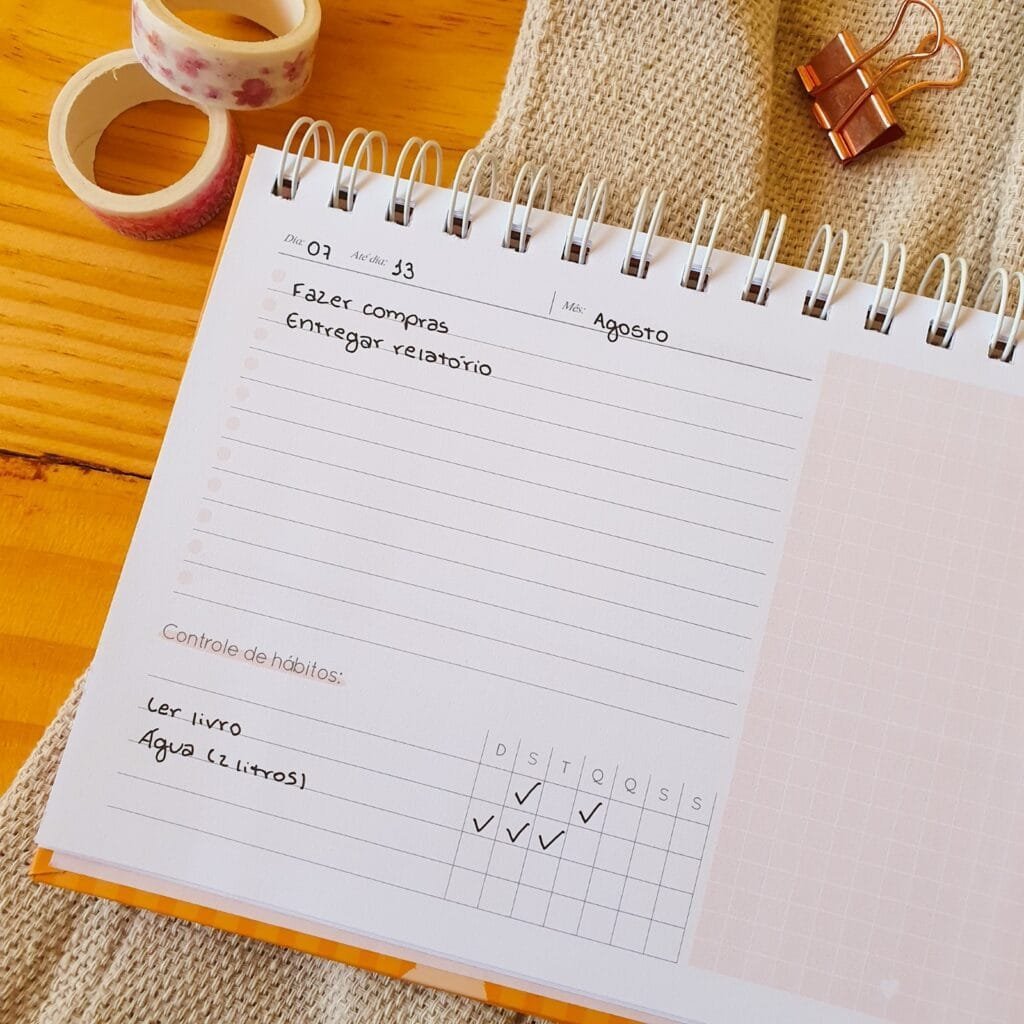 Dia: 07 Até dia: 13 Mês: Agosto
Fazer compras
Entregar relatório
Controle de hábitos:
D S T Q Q S S
Ler livro ✓ ✓
Água (2 litros) ✓ ✓ ✓